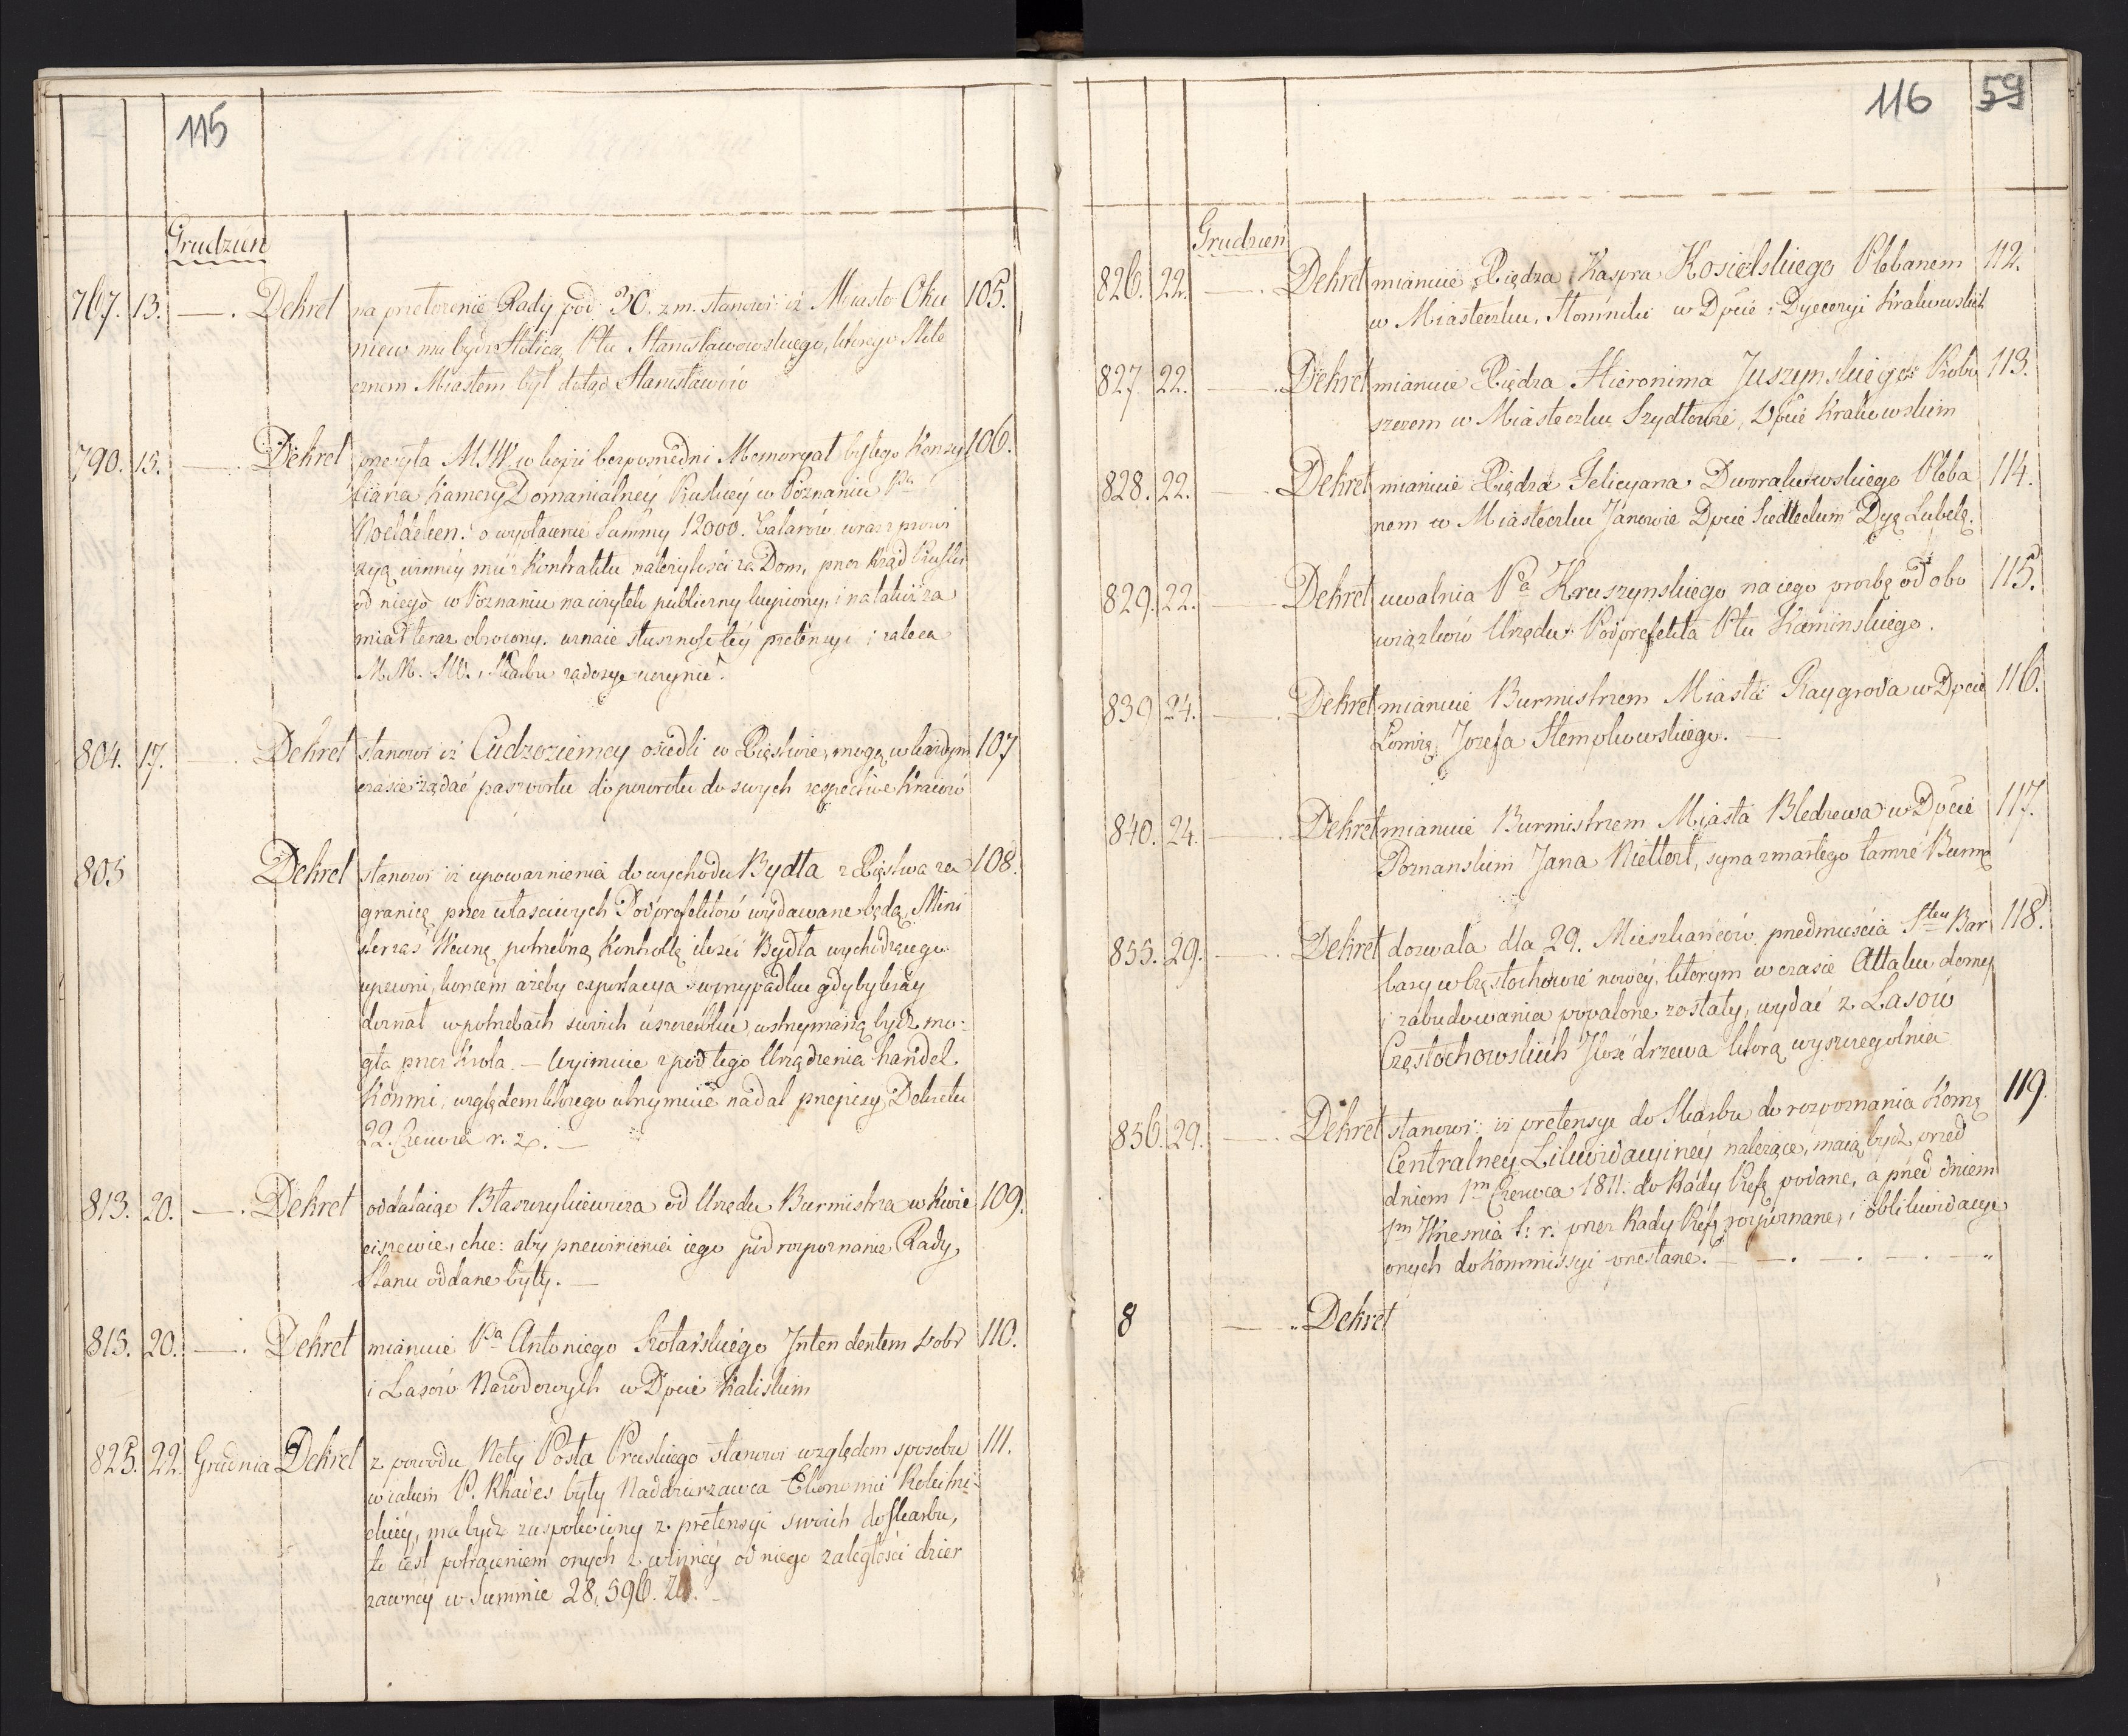 115
Grudzień
767. 13. —. Dekret na przełożenie Rady pod 30. z.m. stanowi iż Miasto Oku 105.
niew ma bydź Stolicą Ptu Stanisławowskiego, którego Stołe
cznem Miastem był dotąd Stanisławów
790. 15. —. Dekret przesyła MSW. w kopii bezpośredni Memoryał byłego Konsy 106.
liarza Kamery Domanialney Pruskiey w Poznaniu Pa
Noeldechen. o wypłacenie Summy 12000. Talarów wraz z prowi
zyą winney mu z Kontraktu należytości za Dom, przez Rząd Pruski
od niego w Poznaniu na użytek publiczny kupiony, i na takiż za
miar teraz obrocony. uznaie słuszność tey pretensyi i zaleca
M.M. SW. i Skarbu zadosyć uczynić.
804. 17. —. Dekret stanowi iż Cudzoziemcy osiedli w Xięstwie, mogą w każdym 107
czasie żądać paszportu do powrotu do swych respective Kraiów
805 Dekret stanowi iż upoważnienia do wychodu Bydła z Xięstwa za 108.
granicę przez właściwych Podprefektów wydawane będą, Mini
ster zaś Wewnę potrzebną Kontrollą ilości Bydła wychodzącego
upewni, końcem ażeby exportacya w przypadku gdyby kray
doznał w potrzebach swoich uszczerbku, wstrzymaną bydź mo-
gła przez Krola. — Wyimuie z pod tego Urządzenia handel
Końmi, względem którego utrzymuie nadal przepisy Dekretu
22. Czerwca r. z. —
813. 20. —. Dekret oddalaiąc Błaszczykiewicza od Urzędu Burmistrza w Kwie 109.
ciszewie, chce: aby przewinienia iego pod rozpoznanie Rady
Stanu oddane były. —
815. 20. —. Dekret mianuie Pa Antoniego Kotarskiego Intendentem Dobr 110.
i Lasów Narodowych w Dpcie Kaliskim
825. 22. Grudnia Dekret z powodu Noty Posła Pruskiego stanowi względem sposobu 111.
w iakiem P. Rhades były Naddzierzawca Ekonomii
ckiey, ma bydź zaspokoiony z pretensyi swoich do Skarbu,
to iest potrąceniem onych z winney od niego zaległości dzier
zawney w Summie 28,596.
116 59
Grudzień
826. 22. —. Dekret mianuie Xiędza Kaspra Kosielskiego Plebanem 112.
w Miasteczku Słomniki w Dpcie i Dyecezyi Krakowskich
827. 22. —. Dekret mianuie Xiędza Hieronima Juszynskiego Probo 113.
szczem w Miasteczku Szydłowie, Dpcie Krakowskim
828. 22. —. Dekret mianuie Xiędza Felicyana Dworakowskiego Pleba 114.
nem w Miasteczku Janowie Dpcie Siedleckim Dyę Lubelę.
829. 22. —. Dekret uwalnia Pa Kraszynskiego na iego prozbę od obo 115.
wiązków Urzędu Podprefekta Ptu Kaminskiego.
839. 24. —. Dekret mianuie Burmistrzem Miasta Raygroda w Dpcie 116.
Łomżę Jozefa Stempkowskiego. —
840. 24. —. Dekret mianuie Burmistrzem Miasta Bledzewa w Dpcie 117.
Poznanskim Jana Niettert, syna zmarłego tamże Burmę
855. 29. —. Dekret dozwala dla 29. Mieszkańców przedmieścia Stey Bar 118.
bary w Częstochowie nowey, którym w czasie Attaku domy
i zabudowania popalone zostały, wydać z Lasów
Częstochowskich Ilość drzewa którą wyszczegolnia
856. 29. —. Dekret stanowi: iż pretensye do Skarbu do rozpoznania Komę 119.
Centralney Likwidacyiney należące, maią bydź przed
dniem 1m Czerwca 1811. do Rady Prefę podane, a przed dniem
1m Wrzesnia t. r. przez Rady Prefę rozpoznane, i obliquidacye
onych do Kommissyi przesłane. — —. —. —. —"
8 — Dekret